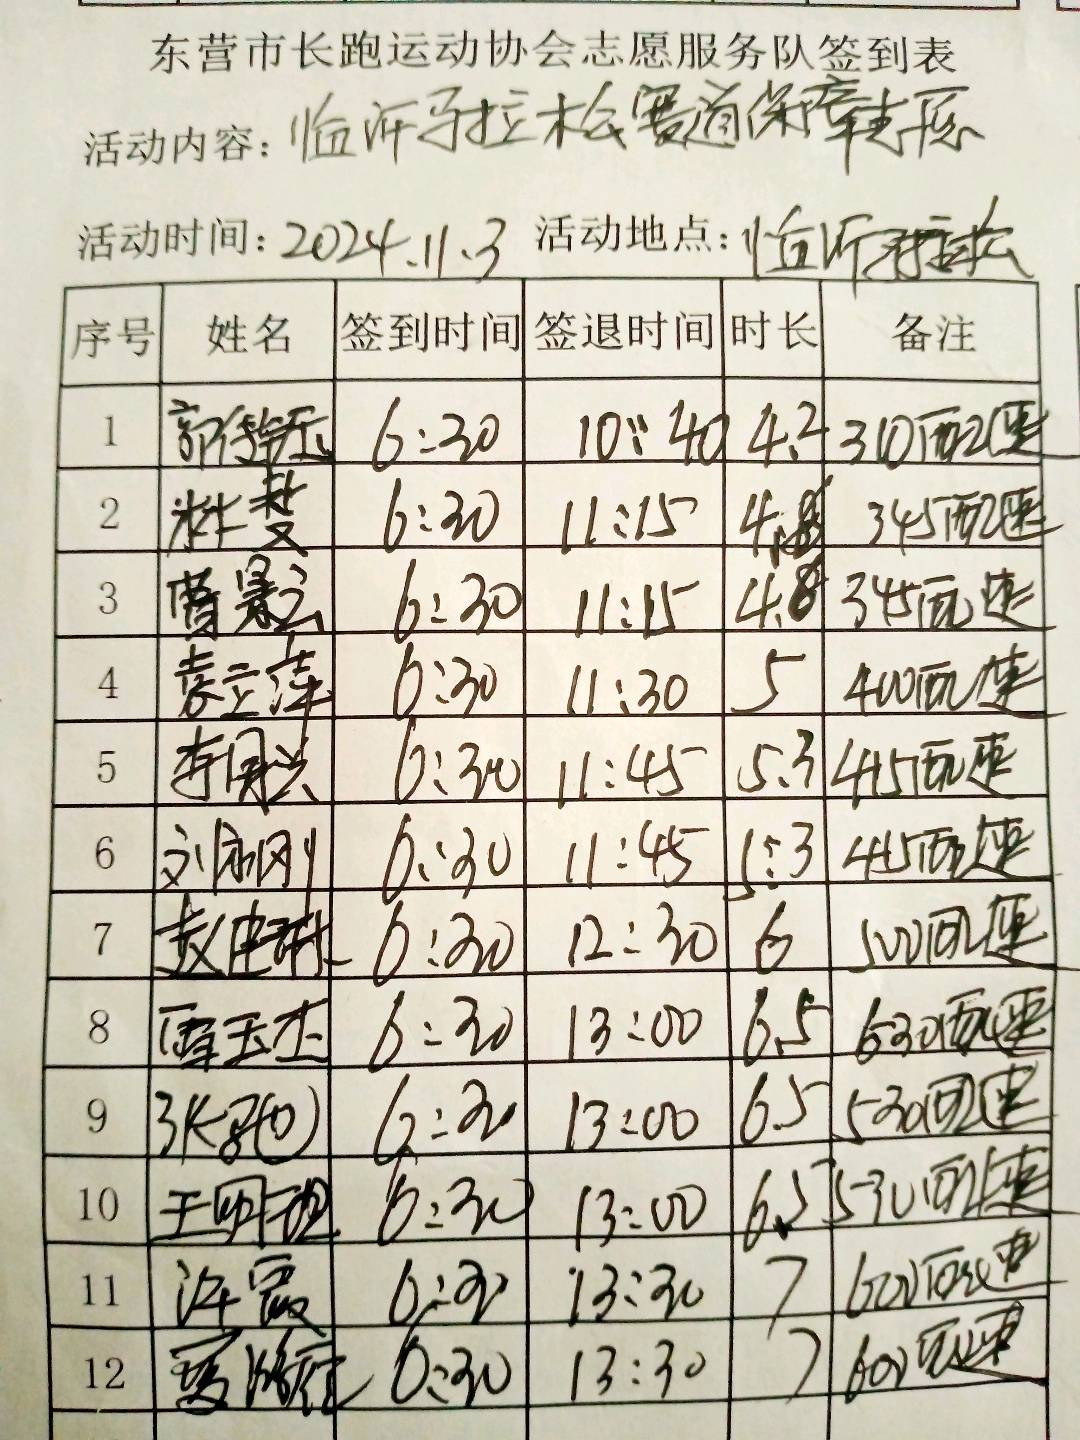 东营市长跑运动协会志愿服务队签到表
活动内容: 临沂马拉松赛道保障志愿
活动时间: 2024.11.3 活动地点: 临沂马拉松
序号 姓名 签到时间 签退时间 时长 备注
1 6:30 10:40 4.2 310配速
2 6:30 11:15 4.8 345配速
3 6:30 11:15 4.8 345配速
4 袁立萍 6:30 11:30 5 400配速
5 6:30 11:45 5.3 415配速
6 6:30 11:45 5.3 415配速
7 6:30 12:30 6 500配速
8 6:30 13:00 6.5 配速
9 6:30 13:00 6.5 530配速
10 6:30 13:00 6.5 530配速
11 许霞 6:30 13:30 7 600配速
12 6:30 13:30 7 600配速